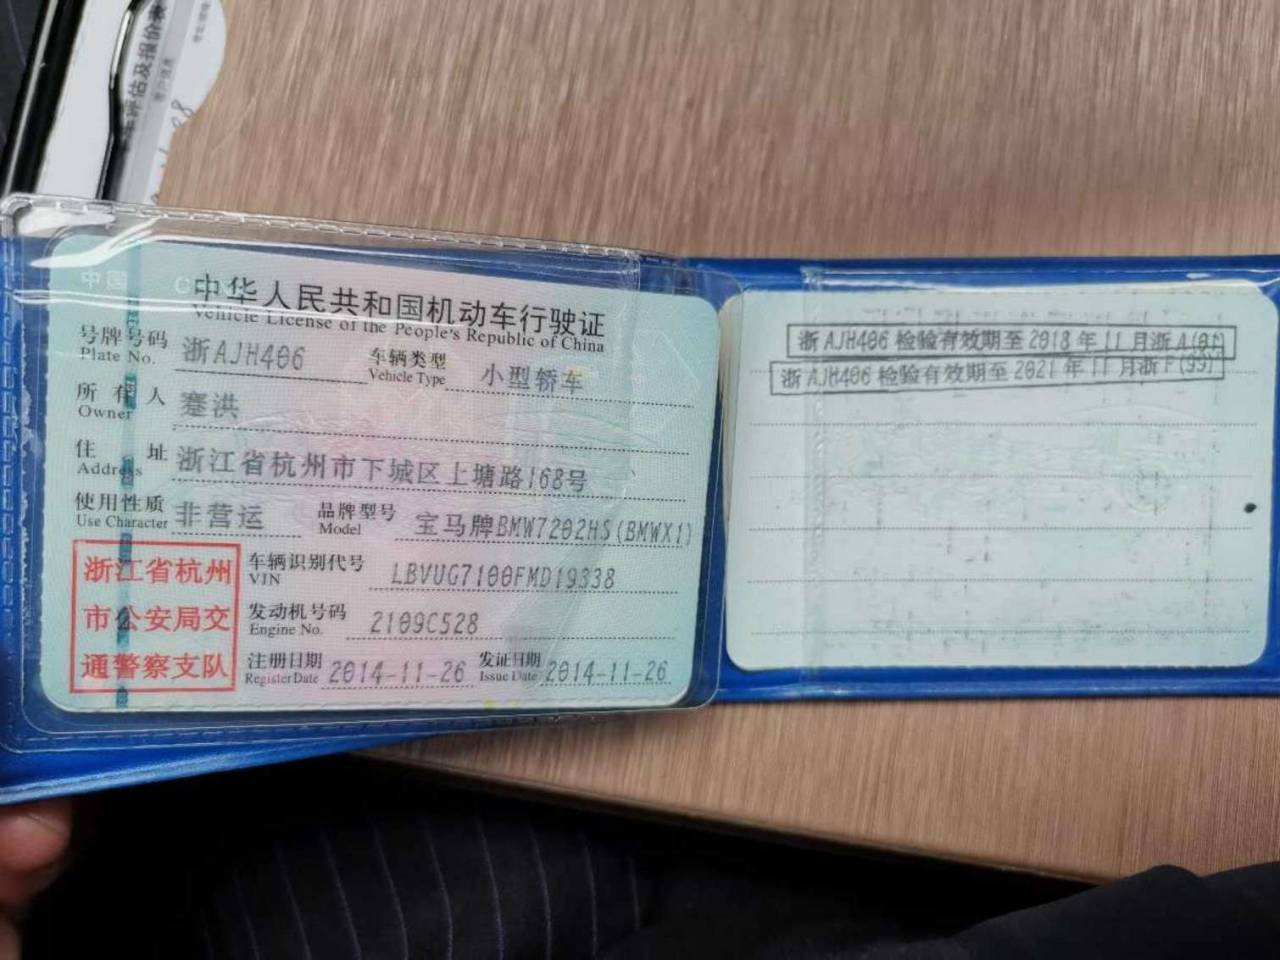 评估及报价表
中国
中华人民共和国机动车行驶证
Vehicle License of the People's Republic of China
号牌号码 浙AJH406 车辆类型 小型轿车
Plate No. Vehicle Type
所有人 蹇洪
Owner
住址 浙江省杭州市下城区上塘路168号
Address
使用性质 非营运 品牌型号 宝马牌BMW7202HS(BMWX1)
Use Character Model
浙江省杭州
市公安局交
通警察支队
车辆识别代号 LBVUG7100FMD19338
VIN
发动机号码 2109C528
Engine No.
注册日期 2014-11-26 发证日期 2014-11-26
Register Date Issue Date
浙AJH406 检验有效期至 2018 年 11 月浙A(01)
浙AJH406 检验有效期至 2021 年 11 月浙F(99)